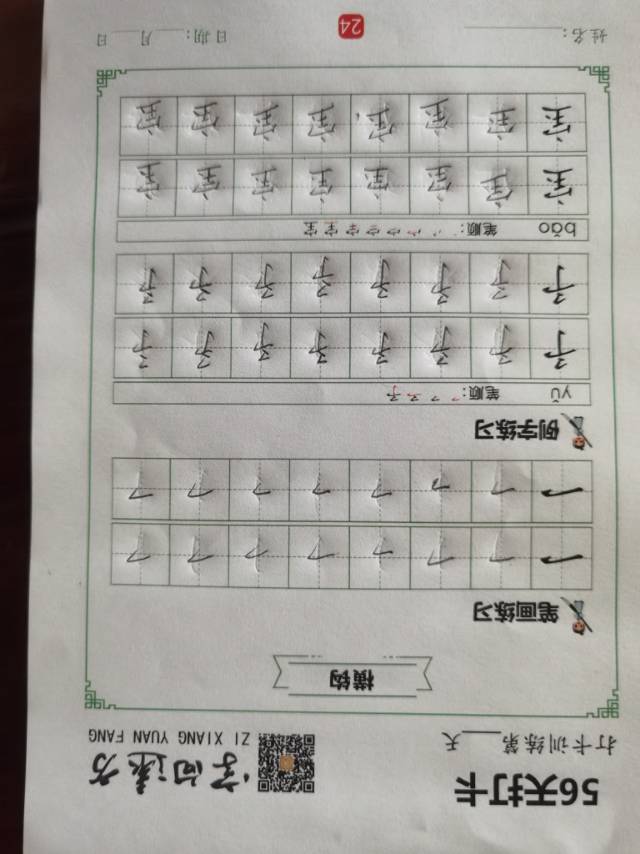 56天打卡
打卡训练第____天
字向远方
ZI XIANG YUAN FANG
横钩
笔画练习
乛 乛 乛 乛 乛 乛 乛 乛
乛 乛 乛 乛 乛 乛 乛 乛
例字练习
yǔ 笔顺:
予 予 予 予 予 予 予 予
予 予 予 予 予 予 予 予
bǎo 笔顺:
宝 宝 宝 宝 宝 宝 宝 宝
宝 宝 宝 宝 宝 宝 宝 宝
姓名:________ 24 日期:____月____日